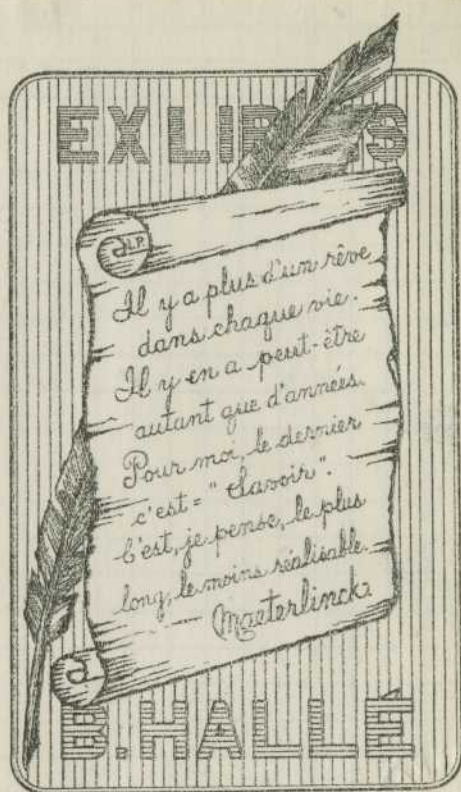 EX LIBRIS
L.P.
Il y a plus d'un rêve
dans chaque vie.
Il y en a peut-être
autant que d'années.
Pour moi, le dernier
c'est = "Savoir".
C'est, je pense, le plus
long, le moins réalisable.
Maeterlinck.
B. HALLÉ